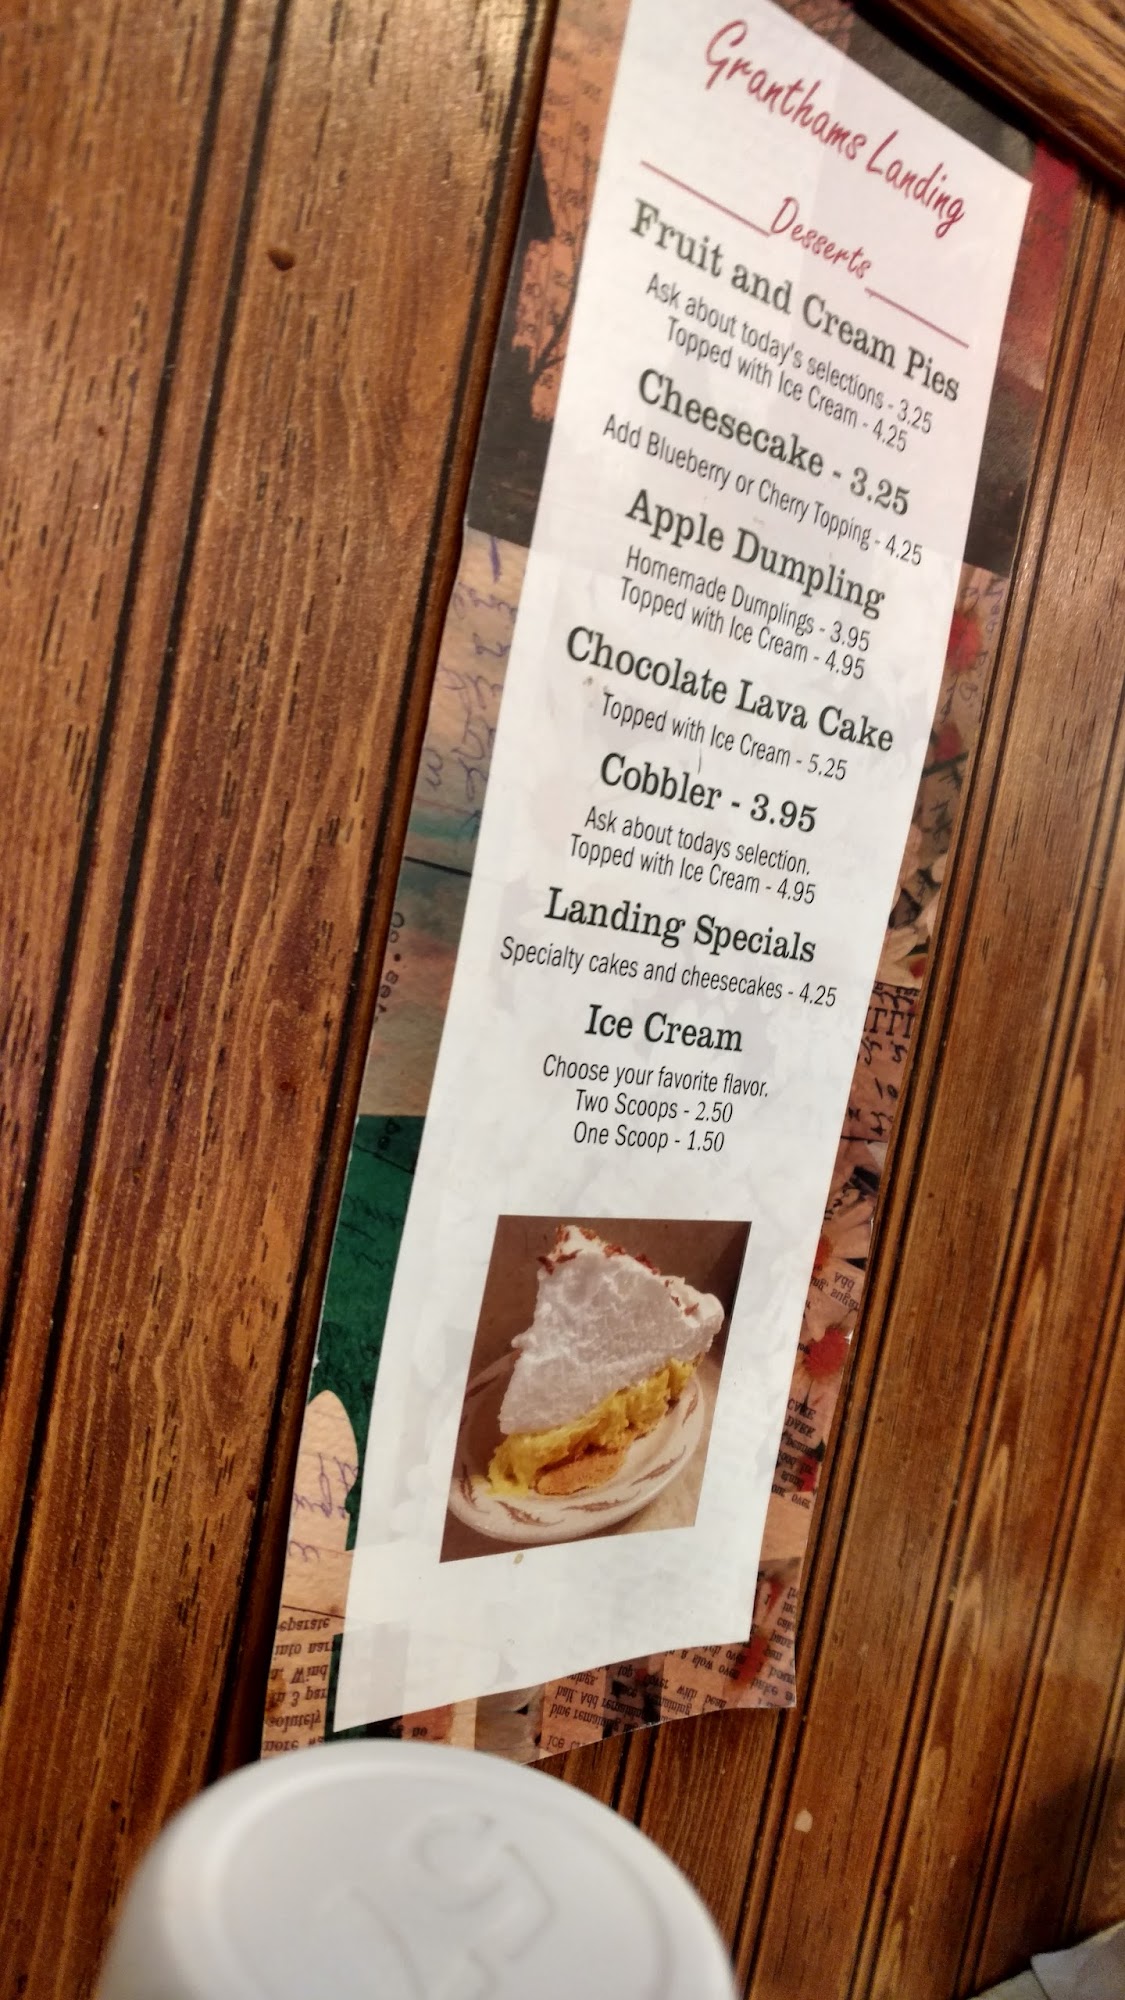 Granthams Landing
Desserts
Fruit and Cream Pies
Ask about today's selections - 3.25
Topped with Ice Cream - 4.25
Cheesecake - 3.25
Add Blueberry or Cherry Topping - 4.25
Apple Dumpling
Homemade Dumplings - 3.95
Topped with Ice Cream - 4.95
Chocolate Lava Cake
Topped with Ice Cream - 5.25
Cobbler - 3.95
Ask about todays selection.
Topped with Ice Cream - 4.95
Landing Specials
Specialty cakes and cheesecakes - 4.25
Ice Cream
Choose your favorite flavor.
Two Scoops - 2.50
One Scoop - 1.50